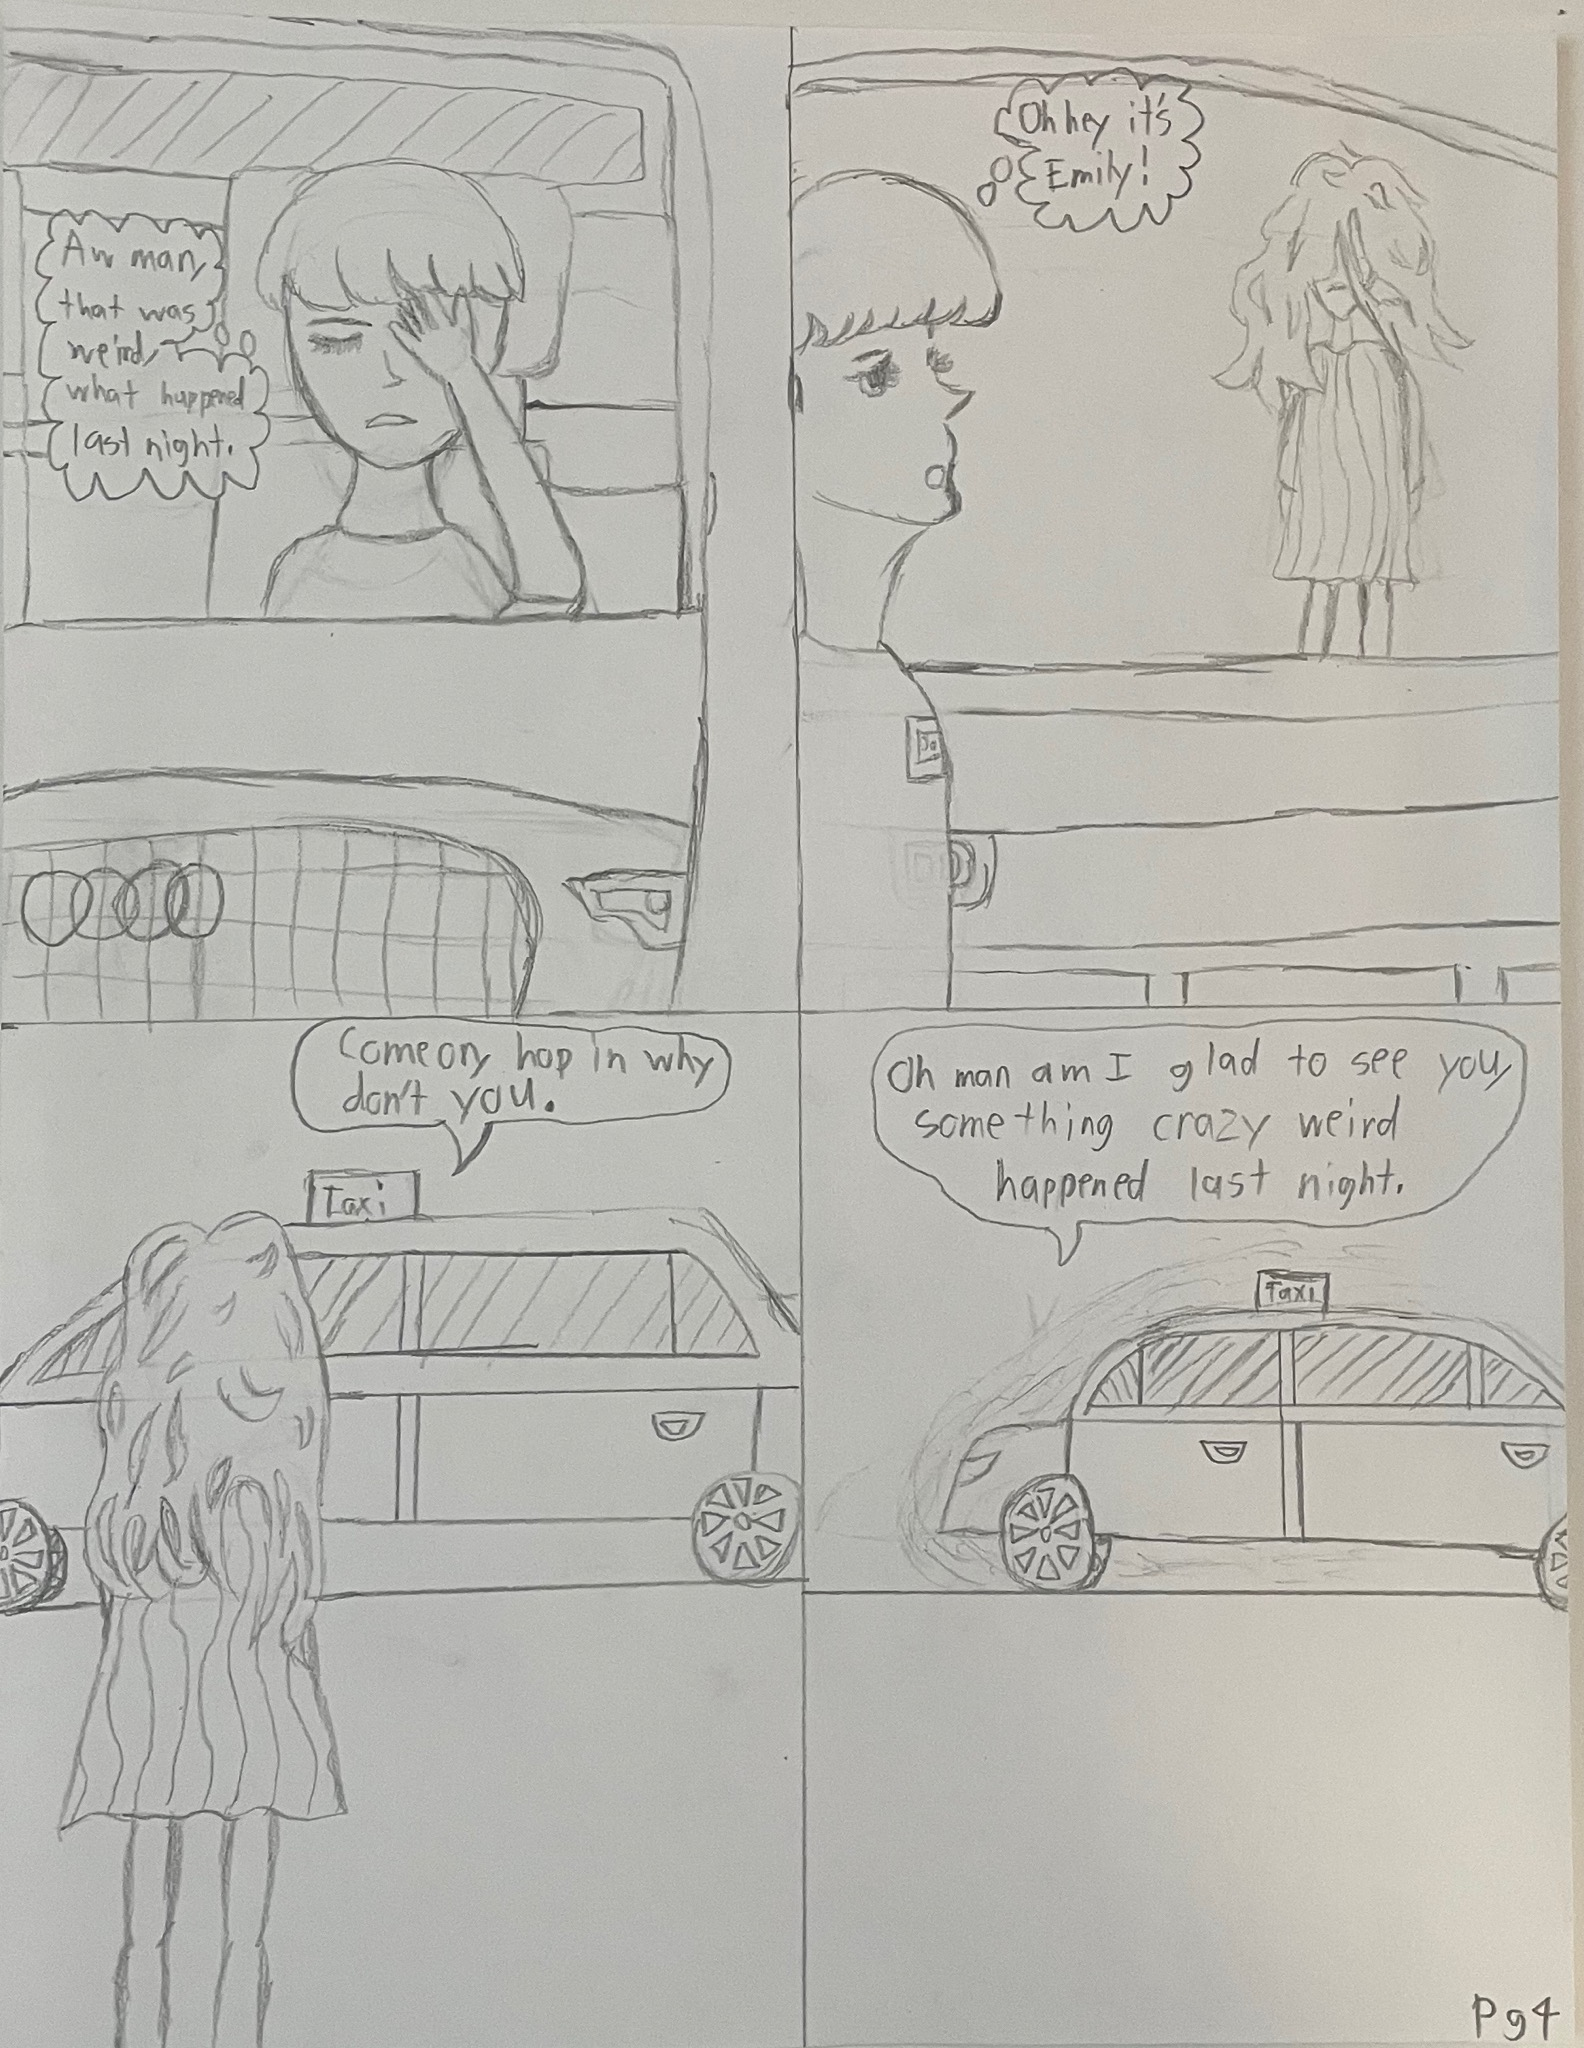 Aw man,
that was
weird,
what happened
last night.
Oh hey it's
Emily!
Come on, hop in why
don't you.
Taxi
Oh man am I glad to see you,
something crazy weird
happened last night.
Taxi
Pg4